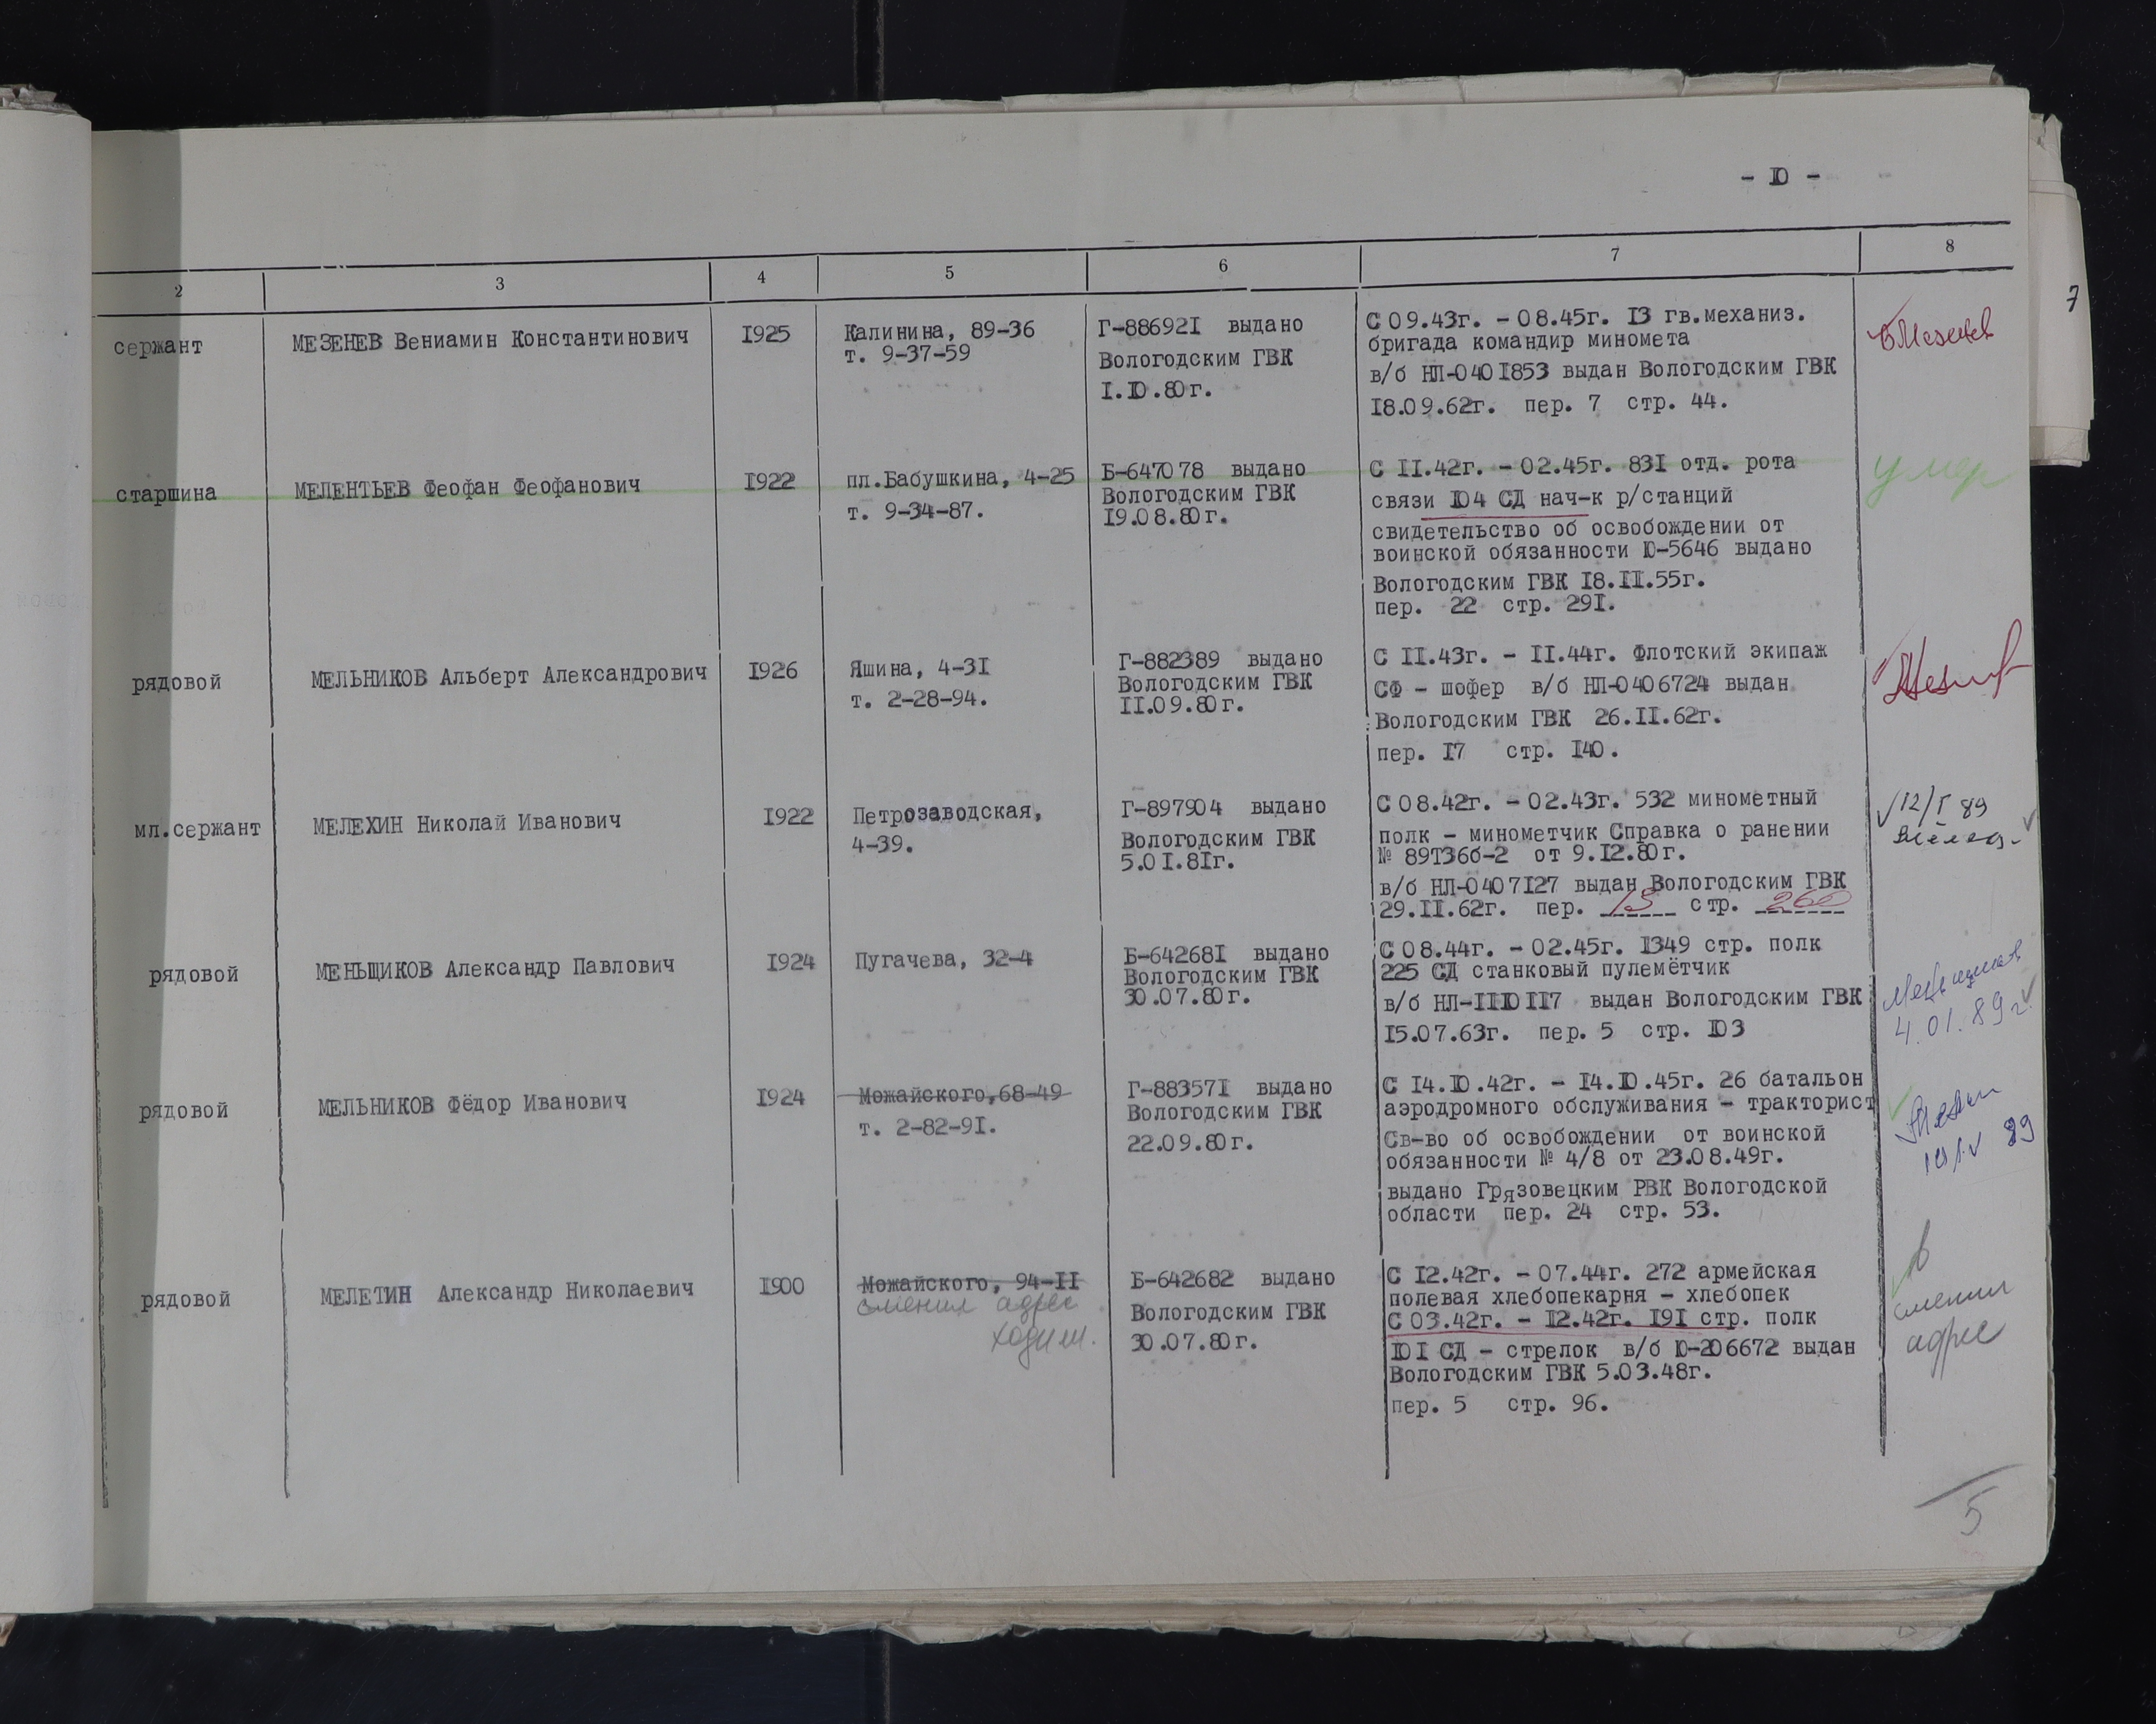 - 10 -
2 3 4 5 6 7 8
7
сержант МЕЗЕНЕВ Вениамин Константинович 1925 Калинина, 89-36 Г-886921 выдано С 09.43г. - 08.45г. 13 гв.механиз.
т. 9-37-59 Вологодским ГВК бригада командир миномета
1.10.80г. в/б НЛ-0401853 выдан Вологодским ГВК
18.09.62г. пер. 7 стр. 44.
старшина МЕЛЕНТЬЕВ Феофан Феофанович 1922 пл.Бабушкина, 4-25 Б-647078 выдано С 11.42г. - 02.45г. 831 отд. рота умер
т. 9-34-87. Вологодским ГВК связи 104 СД нач-к р/станций
19.08.80г. свидетельство об освобождении от
воинской обязанности 10-5646 выдано
Вологодским ГВК 18.11.55г.
пер. 22 стр. 291.
рядовой МЕЛЬНИКОВ Альберт Александрович 1926 Яшина, 4-31 Г-882389 выдано С 11.43г. - 11.44г. Флотский экипаж
т. 2-28-94. Вологодским ГВК СФ - шофер в/б НЛ-0406724 выдан
11.09.80г. Вологодским ГВК 26.11.62г.
пер. 17 стр. 140.
мл.сержант МЕЛЕХИН Николай Иванович 1922 Петрозаводская, Г-897904 выдано С 08.42г. - 02.43г. 532 минометный 12/I 89
4-39. Вологодским ГВК полк - минометчик Справка о ранении
5.01.81г. № 89Т36б-2 от 9.12.80г.
в/б НЛ-0407127 выдан Вологодским ГВК
29.11.62г. пер. 13 стр. 260
рядовой МЕНЬЩИКОВ Александр Павлович 1924 Пугачева, 32-4 Б-642681 выдано С 08.44г. - 02.45г. 1349 стр. полк
Вологодским ГВК 225 СД станковый пулемётчик
30.07.80г. в/б НЛ-1110117 выдан Вологодским ГВК 4.01.89г.
15.07.63г. пер. 5 стр. 103
рядовой МЕЛЬНИКОВ Фёдор Иванович 1924 Можайского,68-49 Г-883571 выдано С 14.10.42г. - 14.10.45г. 26 батальон
т. 2-82-91. Вологодским ГВК аэродромного обслуживания - тракторист
22.09.80г. Св-во об освобождении от воинской 89
обязанности № 4/8 от 23.08.49г.
выдано Грязовецким РВК Вологодской
области пер. 24 стр. 53.
рядовой МЕЛЕТИН Александр Николаевич 1900 Можайского, 94-11 Б-642682 выдано С 12.42г. - 07.44г. 272 армейская
сменил адрес Вологодским ГВК полевая хлебопекарня - хлебопек сменил
ходили. 30.07.80г. С 03.42г. - 12.42г. 191 стр. полк адрес
101 СД - стрелок в/б 10-206672 выдан
Вологодским ГВК 5.03.48г.
пер. 5 стр. 96.
5